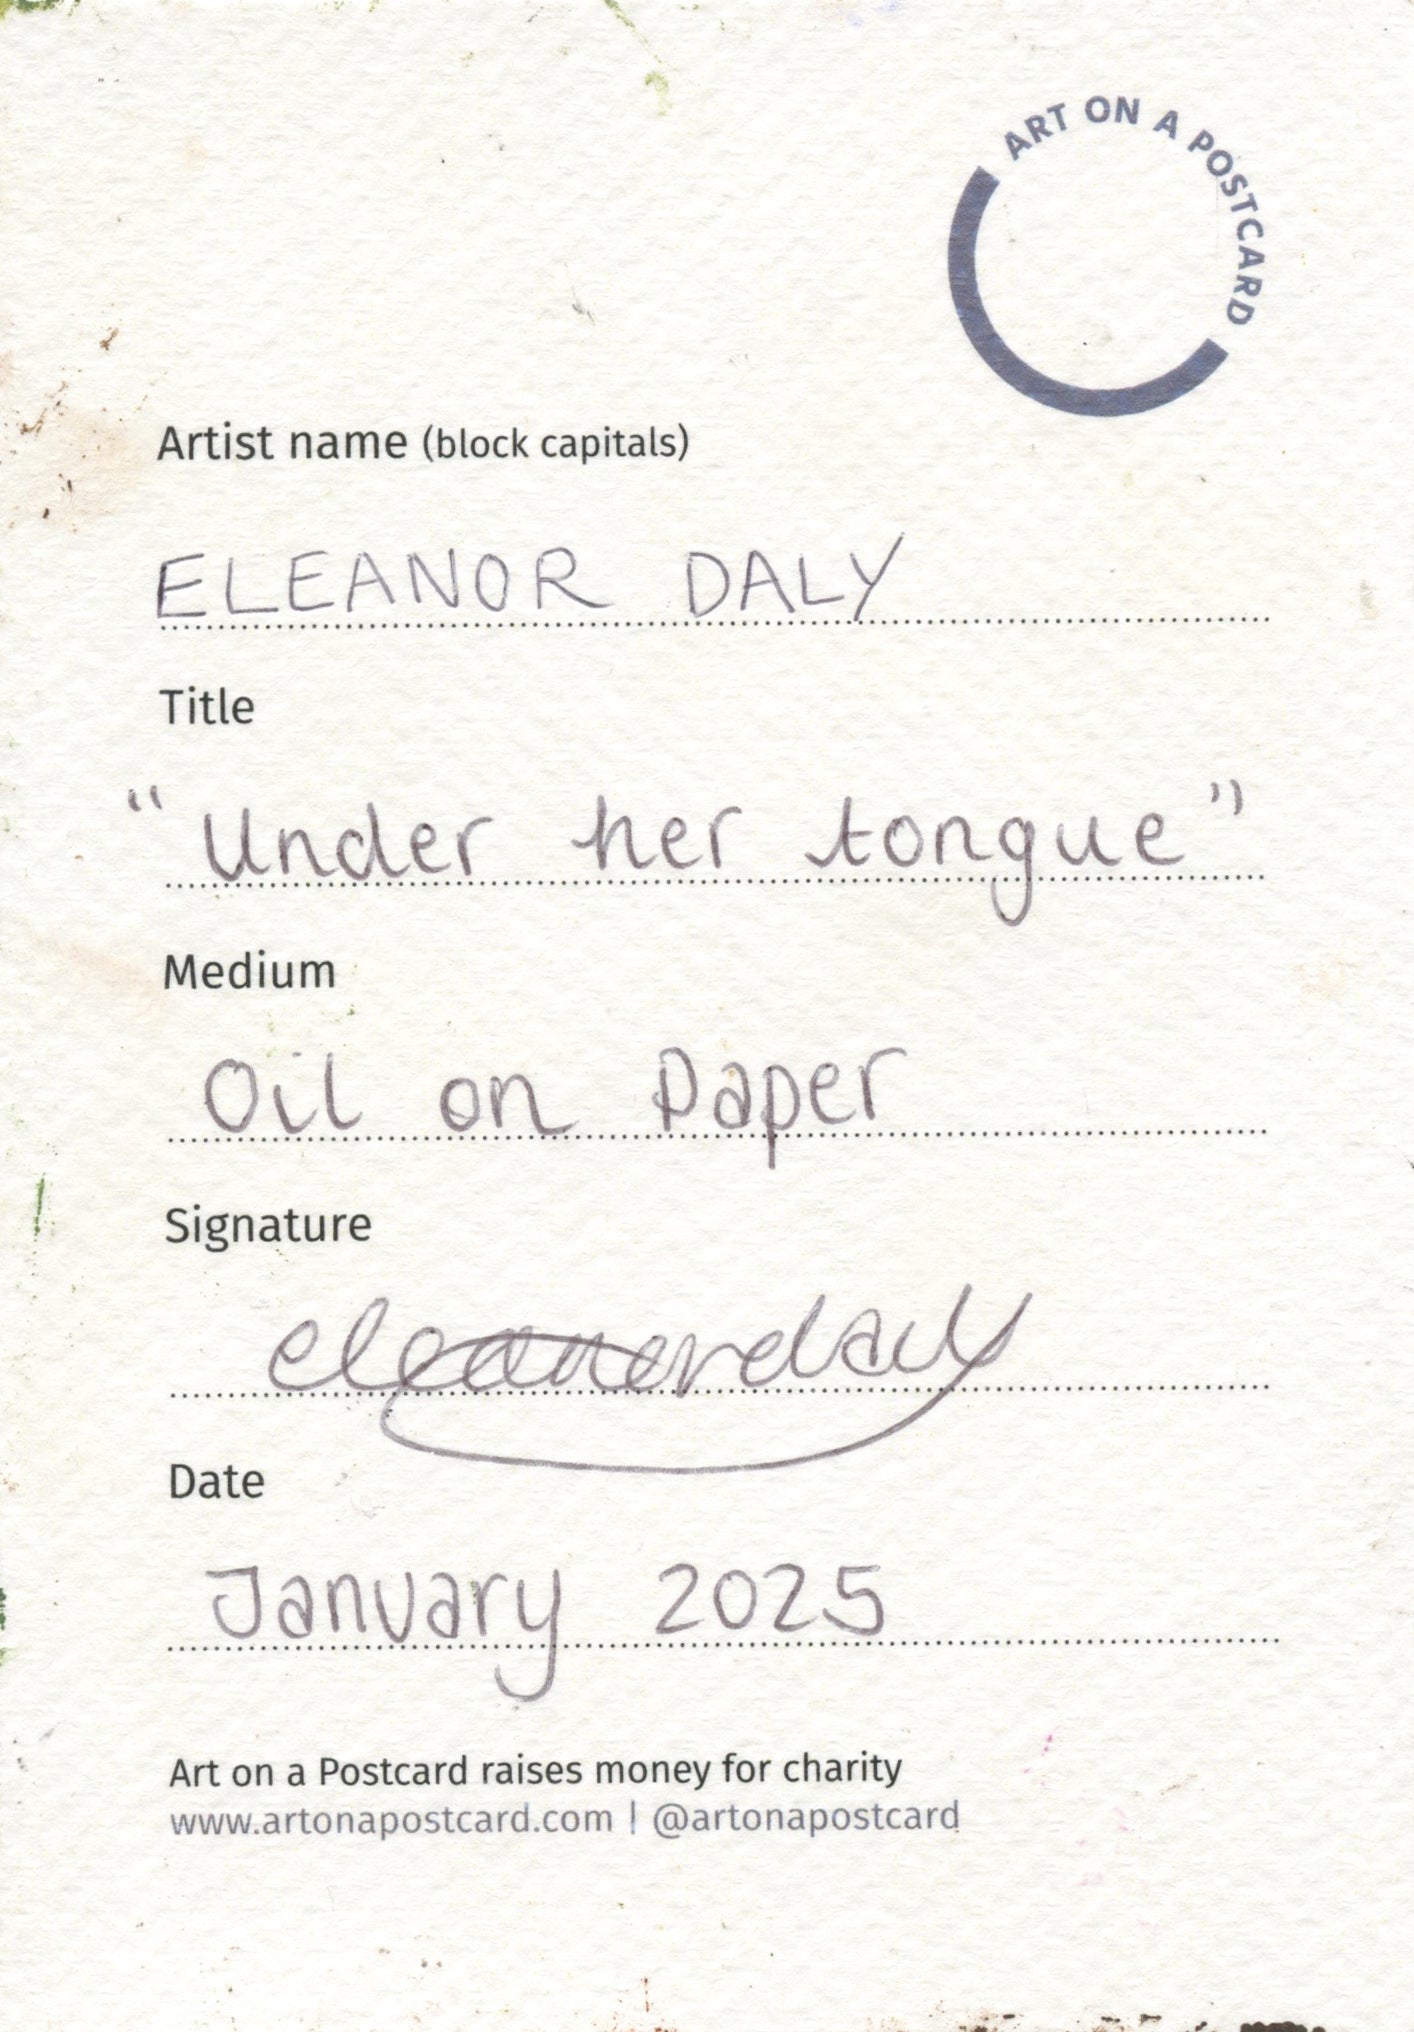 ART ON A POSTCARD
Artist name (block capitals)
ELEANOR DALY
Title
“Under her tongue”
Medium
Oil on Paper
Signature
eleanordaly
Date
January 2025
Art on a Postcard raises money for charity
www.artonapostcard.com | @artonapostcard